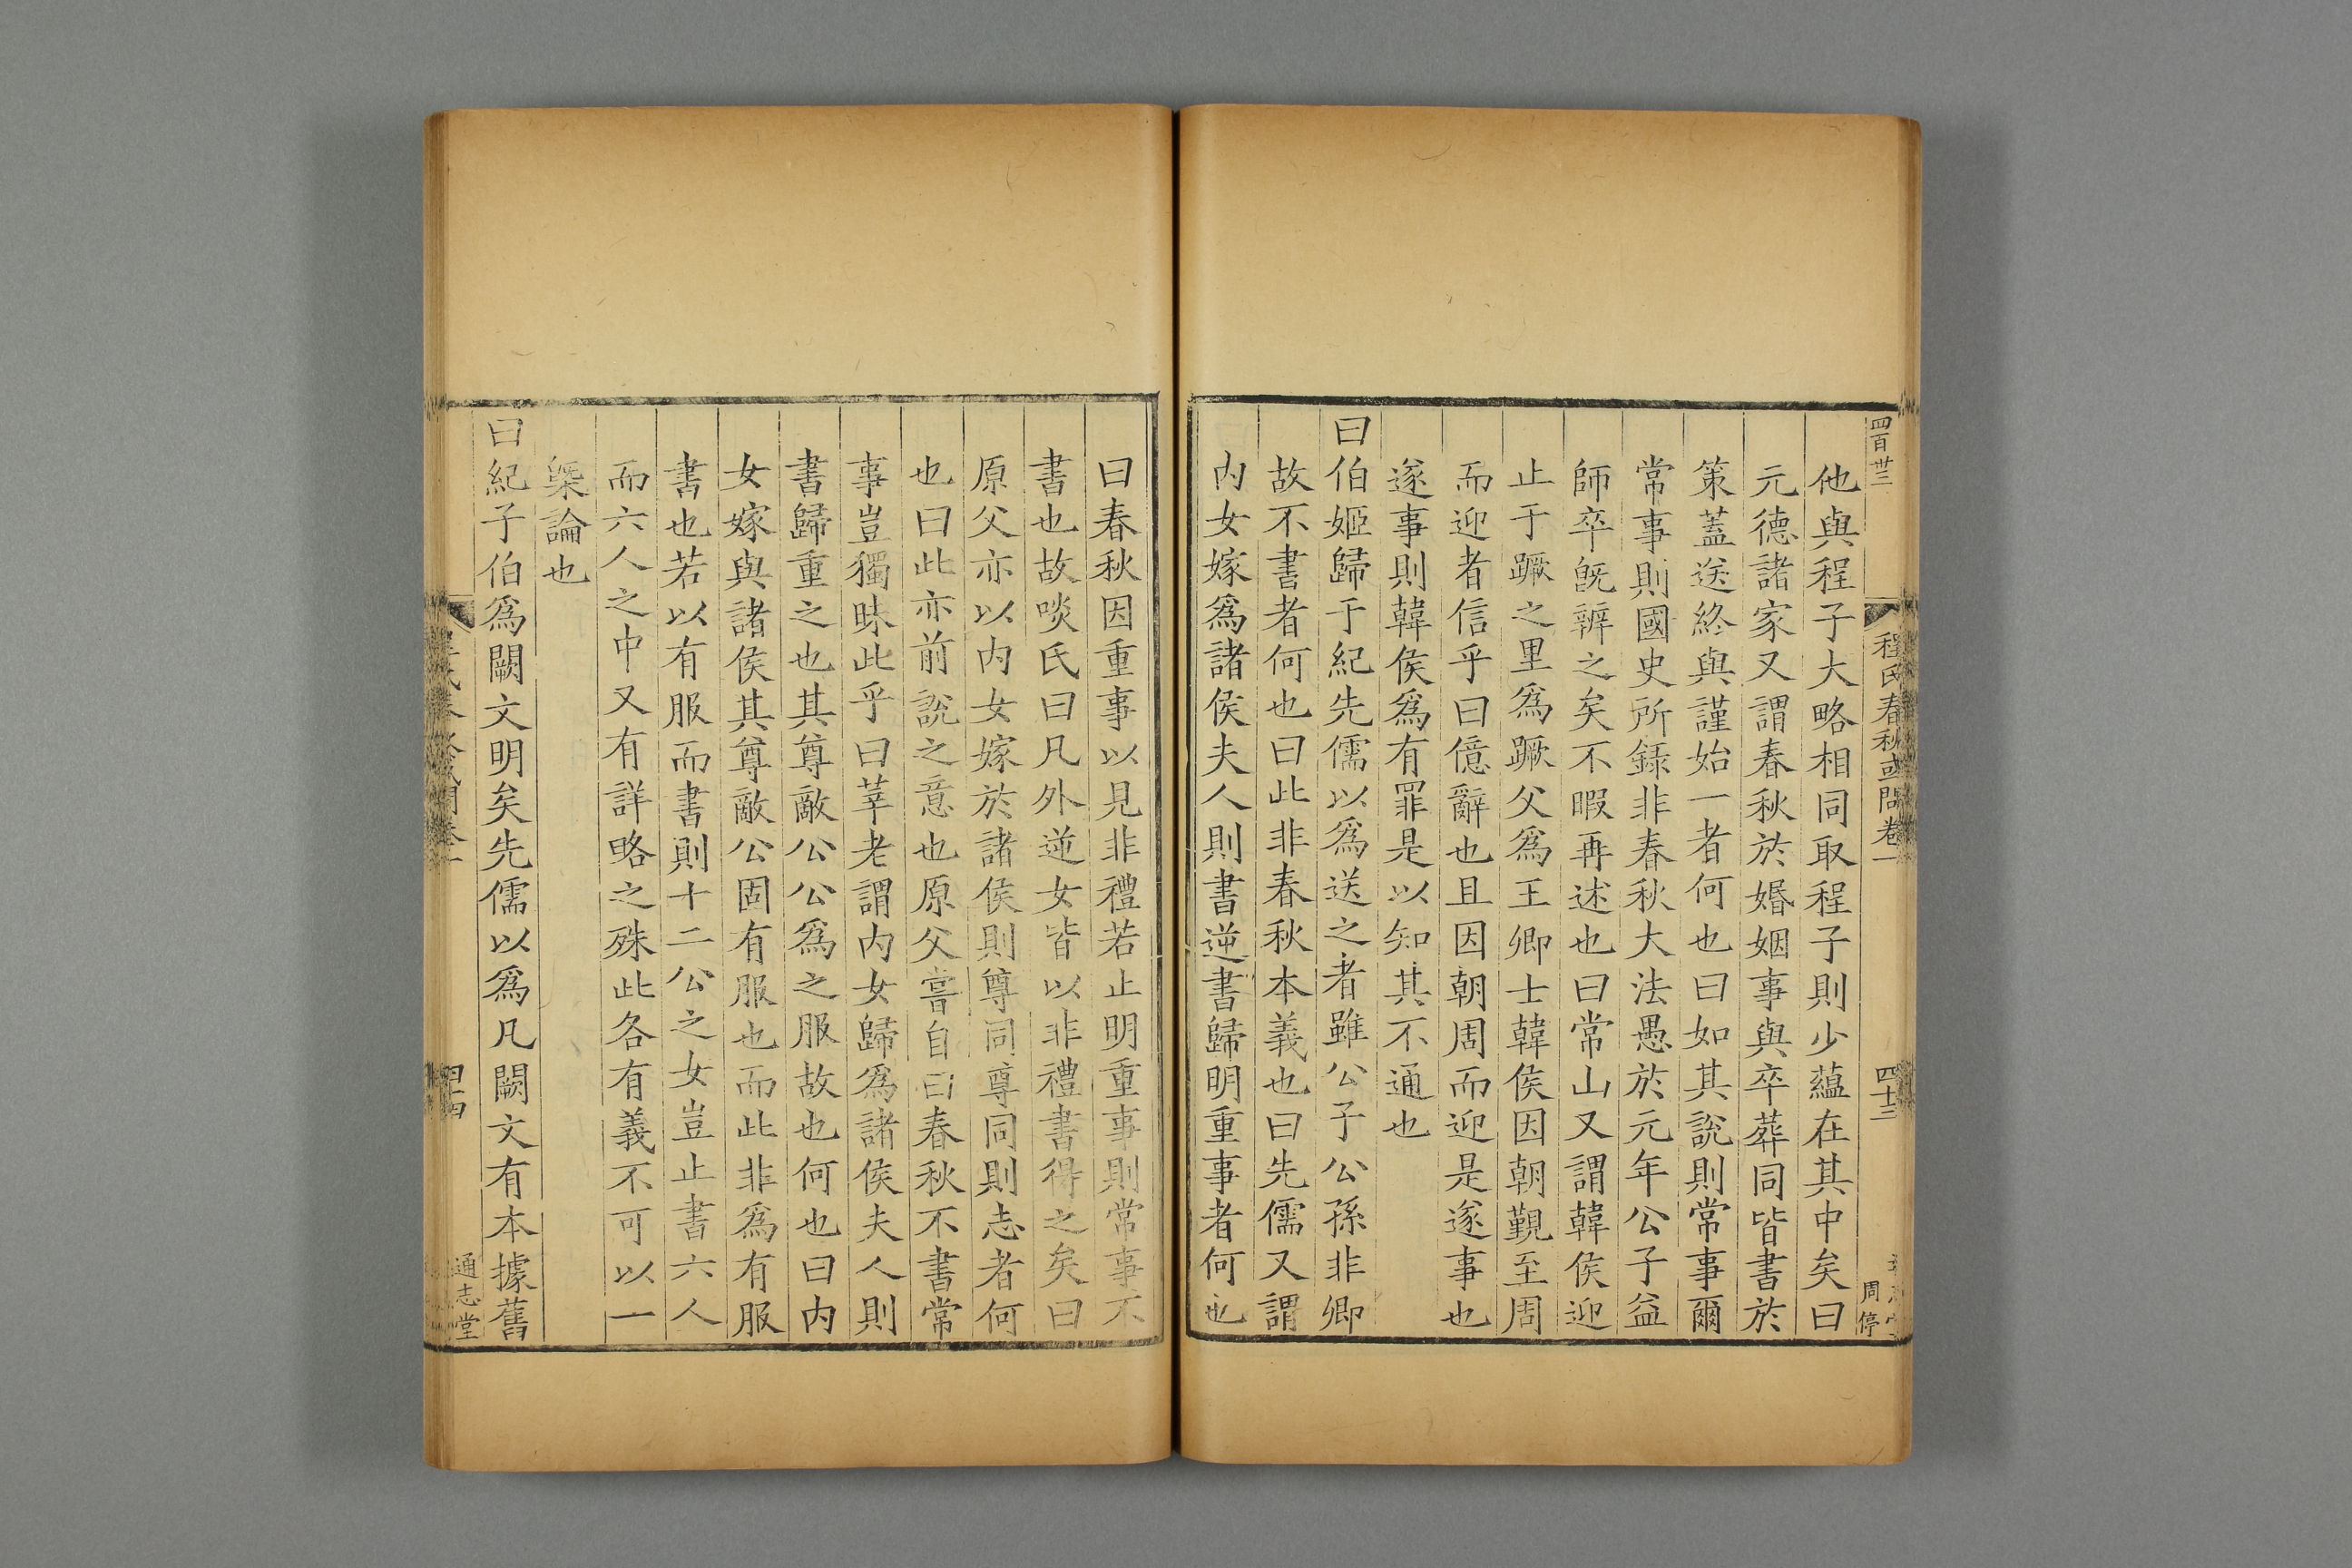 四百卅三
程氏春秋或問卷一
四十三
周停
他與程子大略相同取程子則少蘊在其中矣曰
元德諸家又謂春秋於婚姻事與卒葬同皆書於
策蓋送終與謹始一者何也曰如其說則常事爾
常事則國史所錄非春秋大法愚於元年公子益
師卒旣辨之矣不暇再述也曰常山又謂韓侯迎
止于蹶之里爲蹶父爲王卿士韓侯因朝覲至周
而迎者信乎曰億辭也且因朝周而迎是遂事也
遂事則韓侯爲有罪是以知其不通也
曰伯姬歸于紀先儒以爲送之者雖公子公孫非卿
故不書者何也曰此非春秋本義也曰先儒又謂
内女嫁爲諸侯夫人則書逆書歸明重事者何也
曰春秋因重事以見非禮若止明重事則常事不
書也故啖氏曰凡外逆女皆以非禮書得之矣曰
原父亦以内女嫁於諸侯則尊同尊同則志者何
也曰此亦前說之意也原父嘗自曰春秋不書常
事豈獨昧此乎曰莘老謂内女歸爲諸侯夫人則
書歸重之也其尊敵公公爲之服故也何也曰内
女嫁與諸侯其尊敵公固有服也而此非爲有服
書也若以有服而書則十二公之女豈止書六人
而六人之中又有詳略之殊此各有義不可以一
槩論也
曰紀子伯爲闕文明矣先儒以爲凡闕文有本據舊
通志堂